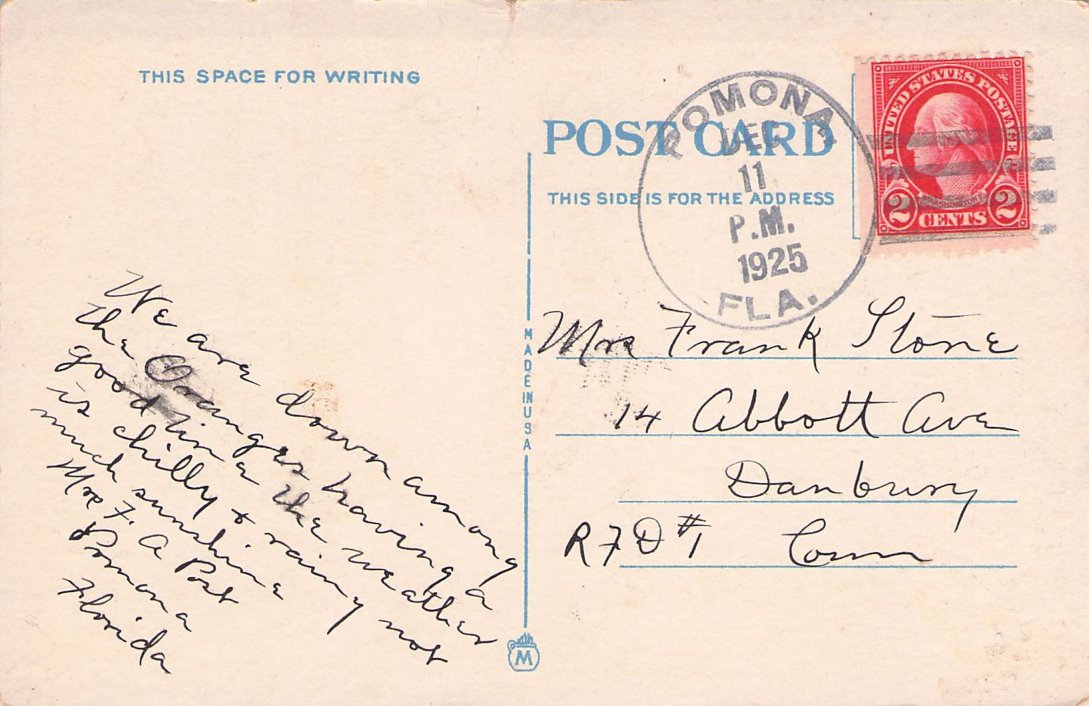 THIS SPACE FOR WRITING
POST CARD
THIS SIDE IS FOR THE ADDRESS
POMONA,
DEC
11
P.M.
1925
FLA.
UNITED STATES POSTAGE
WASHINGTON
2 CENTS 2
MADE IN USA
M
We are down among
the Oranges having a
good time the weather
is chilly & rainy not
much sunshine
Mrs F. A Post
Pomona
Florida
Mrs Frank Stone
14 Abbott Ave
Danbury
RFD #1 Conn